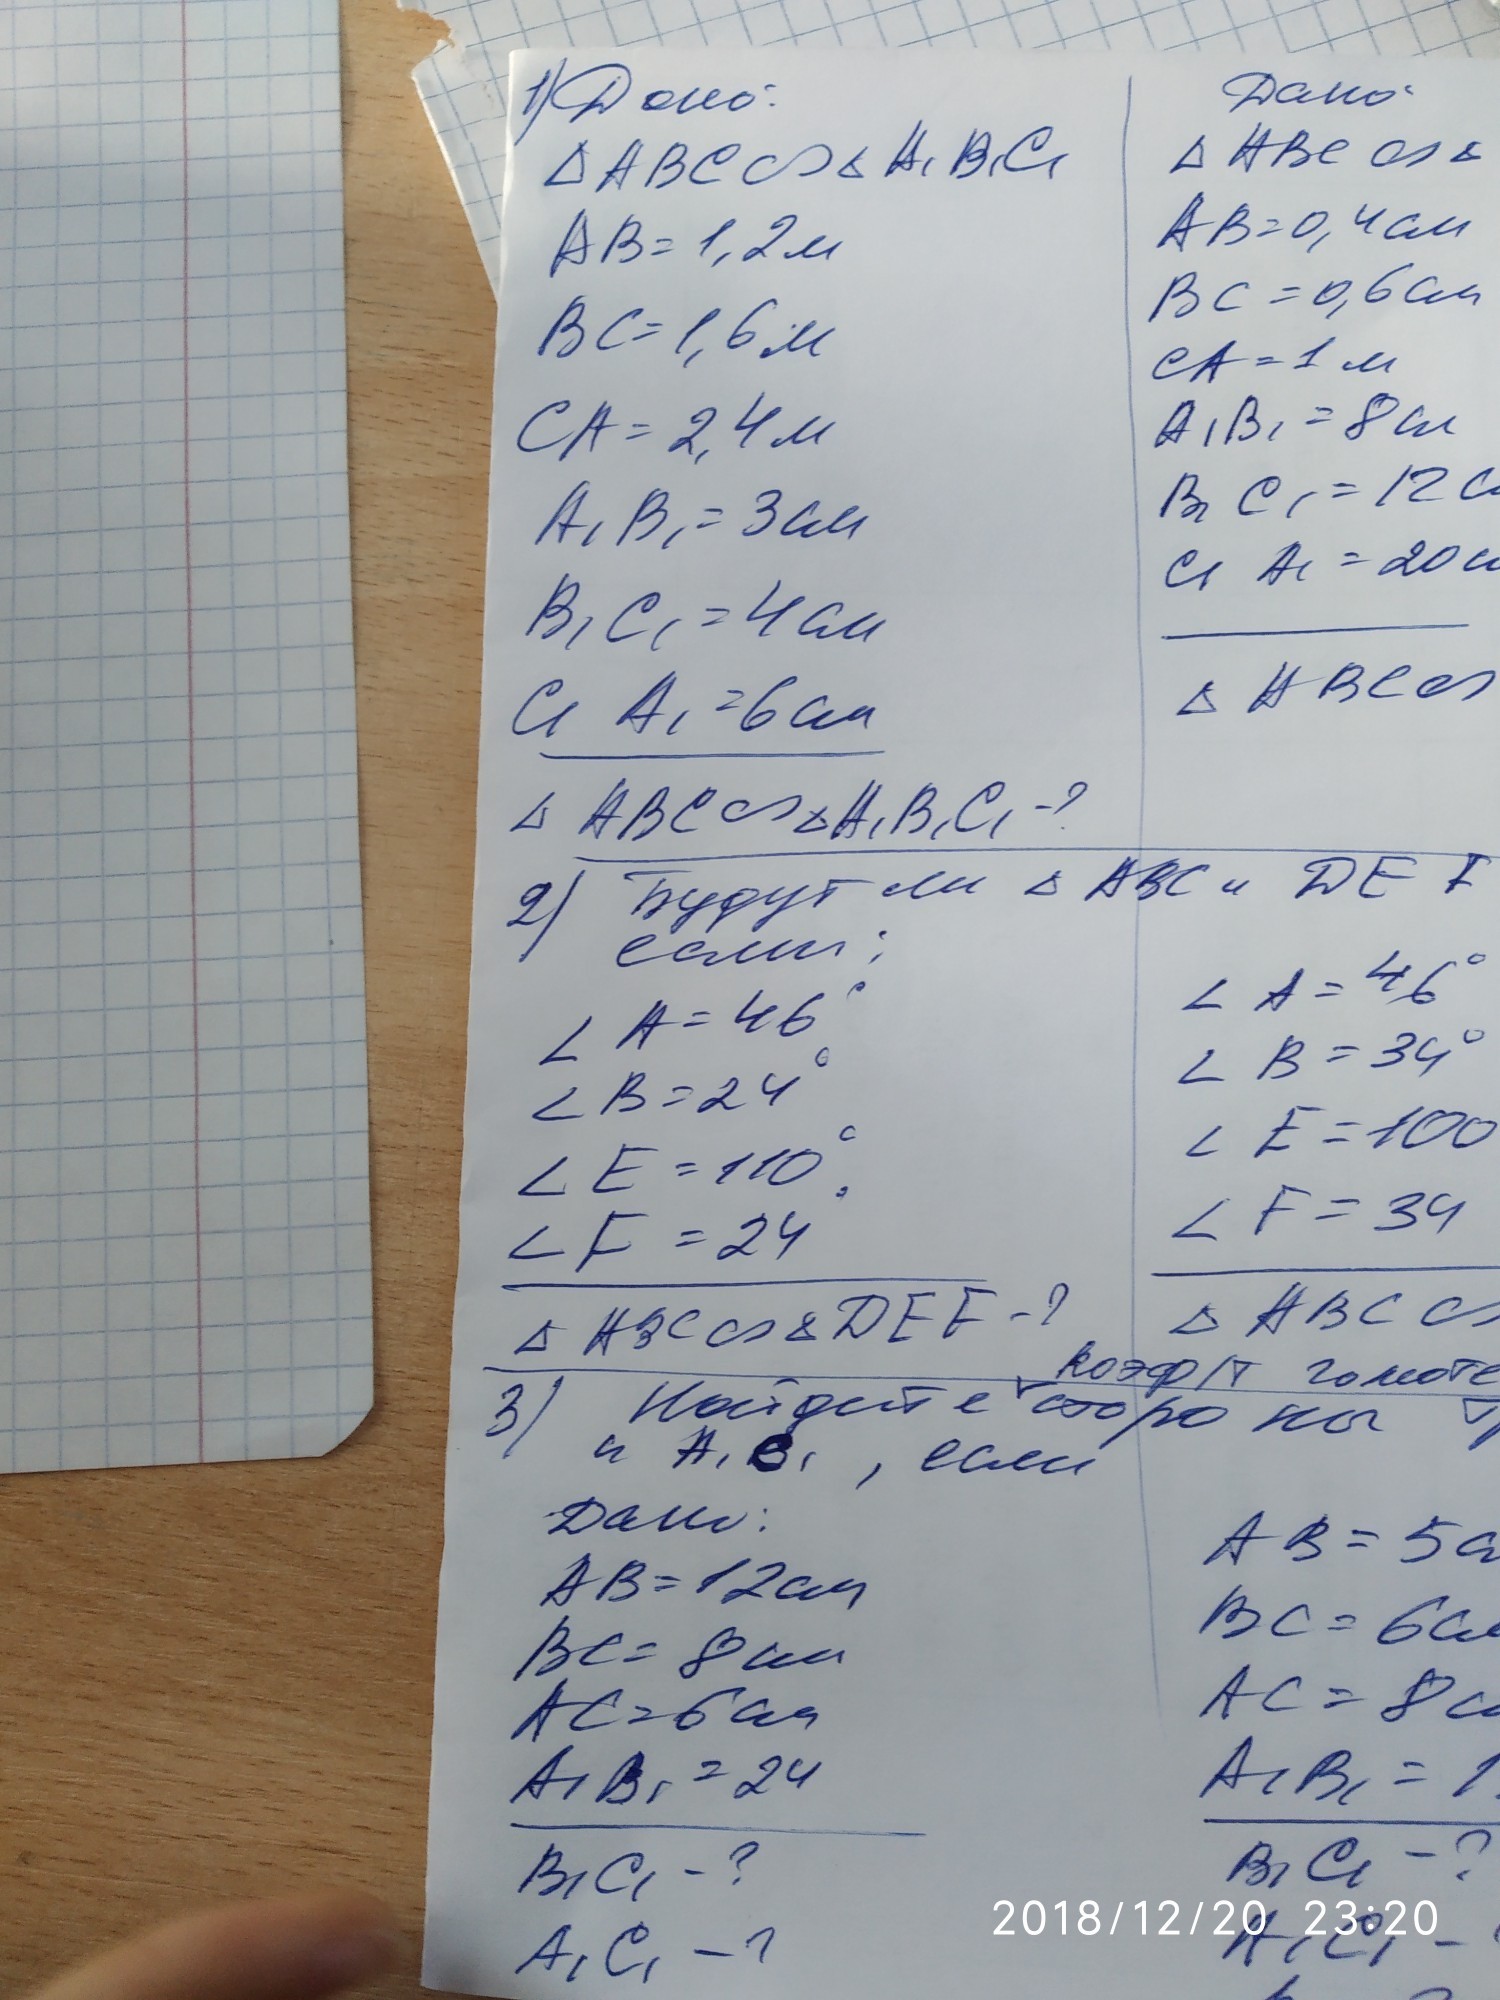 1) Дано:
△ABC ∽ △A₁B₁C₁
AB = 1,2 м
BC = 1,6 м
CA = 2,4 м
A₁B₁ = 3 см
B₁C₁ = 4 см
C₁A₁ = 6 см
△ABC ∽ △A₁B₁C₁ - ?
Дано:
△ABC ∽ △
AB = 0,4 см
BC = 0,6 см
CA = 1 м
A₁B₁ = 8 см
B₁C₁ = 12 с
C₁A₁ = 20 с
△ABC ∽
2) Будут ли △ABC и DEF
если:
∠A = 46°
∠B = 24°
∠E = 110°
∠F = 24°
△ABC ∽ △DEF - ?
∠A = 46°
∠B = 34°
∠E = 100
∠F = 34
△ABC ∽
коэф/т гомоте
3) Найдите стороны тр
и A₁C₁, если
Дано:
AB = 12 см
BC = 8 см
AC = 6 см
A₁B₁ = 24
B₁C₁ - ?
A₁C₁ - ?
AB = 5 с
BC = 6 см
AC = 8 с
A₁B₁ = 1
B₁C₁ - ?
A₁C₁ -
2018/12/20 23:20